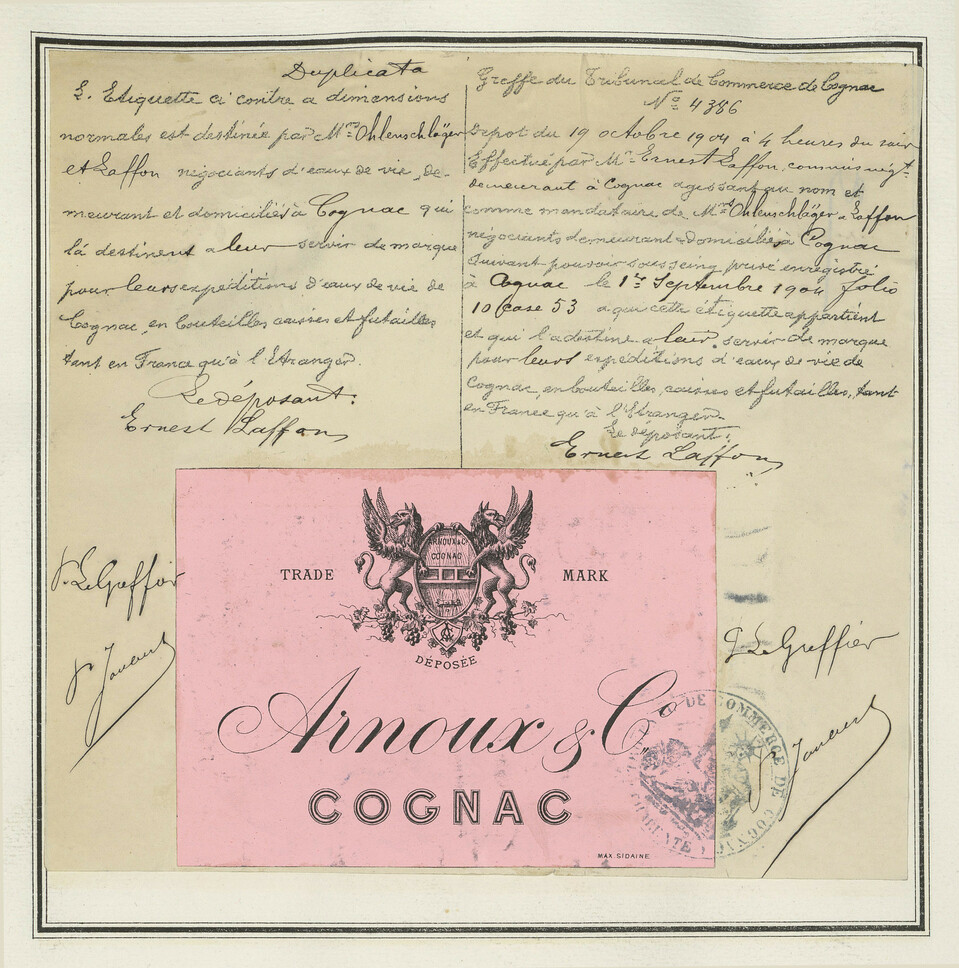 Duplicata
L. Etiquette ci contre a dimensions
normales est destinée par Mrs Ohlenschläger
et Laffon négociants d'eaux de vie, de-
meurant et domiciliés à Cognac qui
la destinent a leur servir de marque
pour leurs expéditions d'eaux de vie de
Cognac, en bouteilles caisses et futailles
tant en France qu'à l'Etranger.
Le déposant.
Ernest Laffon
Greffe du Tribunal de Commerce de Cognac
No 4386
Depot du 19 octobre 1904 à 4 heures du soir
Effectué par Mr Ernest Laffon, commis négt.
demeurant à Cognac agissant au nom et
comme mandataire de Mrs Ohlenschläger & Laffon
négociants demeurant & domiciliés à Cognac
suivant pouvoir sous seing privé enregistré
à Cognac le 1er Septembre 1904 folio
10 case 53 a que cette étiquette appartient
et qui l'a destine a leur servir de marque
pour leurs expéditions d'eaux de vie de
Cognac, en bouteilles, caisses et futailles, tant
en France qu'à l'Etranger.
Le déposant.
Ernest Laffon
P. Le Greffier
P. Le Greffier
ARNOUX & Co
COGNAC
TRADE MARK
DÉPOSÉE
Arnoux & Co
COGNAC
MAX SIDAINE
TRIBUNAL DE COMMERCE DE COGNAC
CHARENTE